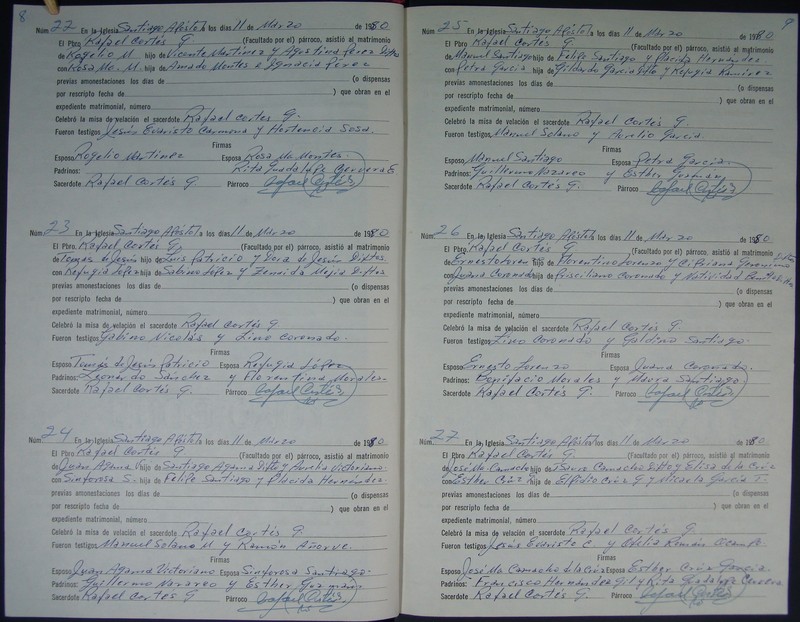 8
Núm. 22 En la Iglesia Santiago Apóstol a los días 11 de Marzo de 1980
El Pbro. Rafael Cortés G. (Facultado por el) párroco, asistió al matrimonio
de Rogelio M. hijo de Vicente Martínez y Agustina Pérez Dftos
con Rosa Ma. M. hija de Amado Montes e Ignacia Pérez
previas amonestaciones los días de (o dispensas
por rescripto fecha de ) que obran en el
expediente matrimonial, número
Celebró la misa de velación el sacerdote Rafael Cortés G.
Fueron testigos Jesús Evaristo Carmona y Hortencia Sosa.
Firmas
Esposo Rogelio Martínez Esposa Rosa Ma. Montes.
Padrinos: Rita Guadalupe
Sacerdote Rafael Cortés G. Párroco Rafael Cortés
Núm. 23 En la Iglesia Santiago Apóstol a los días 11 de Marzo de 1980
El Pbro. Rafael Cortés G. (Facultado por el) párroco, asistió al matrimonio
de Tomás de Jesús hijo de Luis Patricio y Dora de Jesús Dftos.
con Refugia López hija de Sabino López y Zenaida Mejía Dftos.
previas amonestaciones los días de (o dispensas
por rescripto fecha de ) que obran en el
expediente matrimonial, número
Celebró la misa de velación el sacerdote Rafael Cortés G
Fueron testigos Gabino Nicolás y Lino Coronado.
Firmas
Esposo Tomás de Jesús Patricio Esposa Refugia López
Padrinos: Leonardo Sánchez y Florentina Morales
Sacerdote Rafael Cortés G. Párroco Rafael Cortés
Núm. 24 En la Iglesia Santiago Apóstol a los días 11 de Marzo de 1980
El Pbro. Rafael Cortés G (Facultado por el) párroco, asistió al matrimonio
de Juan Agama V. hijo de Santiago Agama Dfto y Aurelia Victoriano
con Sinforosa S. hija de Felipe Santiago y Plácida Hernández.
previas amonestaciones los días de (o dispensas
por rescripto fecha de ) que obran en el
expediente matrimonial, número
Celebró la misa de velación el sacerdote Rafael Cortés G
Fueron testigos Manuel Solano M y Ramón Añorve.
Firmas
Esposo Juan Agama Victoriano Esposa Sinforosa Santiago.
Padrinos: Guillermo Nazareo y Esther Guzmán
Sacerdote Rafael Cortés G Párroco Rafael Cortés
9
Núm. 25 En la Iglesia Santiago Apóstol a los días 11 de Marzo de 1980
El Pbro. Rafael Cortés G (Facultado por el) párroco, asistió al matrimonio
de Manuel Santiago hijo de Felipe Santiago y Plácida Hernández
con Petra García hija de Gildardo García Dfto y Refugia Ramírez
previas amonestaciones los días de (o dispensas
por rescripto fecha de ) que obran en el
expediente matrimonial, número
Celebró la misa de velación el sacerdote Rafael Cortés G.
Fueron testigos Manuel Solano y Aurelio García.
Firmas
Esposo Manuel Santiago Esposa Petra García.
Padrinos: Guillermo Nazareo y Esther Guzmán
Sacerdote Rafael Cortés G. Párroco Rafael Cortés
Núm. 26 En la Iglesia Santiago Apóstol a los días 11 de Marzo de 1980.
El Pbro. Rafael Cortés G. (Facultado por el) párroco, asistió al matrimonio
de Ernesto Loren hijo de Florentino Lorenzo y Cipriana Geronimo
con Juana Coronado hija de Prisciliano Coronado y Natividad
previas amonestaciones los días de (o dispensas
por rescripto fecha de ) que obran en el
expediente matrimonial, número
Celebró la misa de velación el sacerdote Rafael Cortés G.
Fueron testigos Lino Coronado y Galdino Santiago.
Firmas
Esposo Ernesto Lorenzo Esposa Juana Coronado.
Padrinos: Bonifacio Morales y Maura Santiago
Sacerdote Rafael Cortés G. Párroco Rafael Cortés
Núm. 27 En la Iglesia Santiago Apóstol a los días 11 de Marzo de 1980.
El Pbro. Rafael Cortés G (Facultado por el) párroco, asistió al matrimonio
de José Ma. Camacho hijo de Camacho Dfto y Elisa de la Cruz
con Esther Cruz hija de Elfidio Cruz G y Micaela García T.
previas amonestaciones los días de (o dispensas
por rescripto fecha de ) que obran en el
expediente matrimonial, número
Celebró la misa de velación el sacerdote Rafael Cortés G
Fueron testigos Jesús Evaristo C y Odilia Román Ocampo.
Firmas
Esposo José Ma Camacho de la Cruz Esposa Esther Cruz García
Padrinos: Francisco Hernández Gil y Rita Guadalupe
Sacerdote Rafael Cortés G. Párroco Rafael Cortés